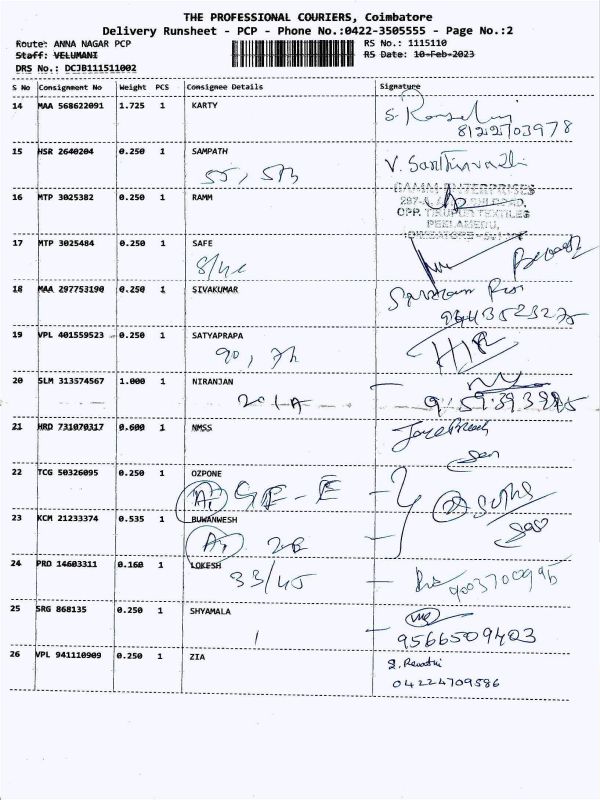 THE PROFESSIONAL COURIERS, Coimbatore
Delivery Runsheet - PCP - Phone No.:0422-3505555 - Page No.:2
Route: ANNA NAGAR PCP RS No.: 1115110
Staff: VELUMANI RS Date: 10-Feb-2023
DRS No.: DCJB111511002
S No Consignment No Weight PCS Consignee Details Signature
14 MAA 568622091 1.725 1 KARTY
8122703978
15 HSR 2640204 0.250 1 SAMPATH
55, 573
16 MTP 3025382 0.250 1 RAMM
GAMM ENTERPRISES
OPP. TIRUPUR TEXTILES
PEELAMEDU,
17 MTP 3025484 0.250 1 SAFE
18 MAA 297753190 0.250 1 SIVAKUMAR
19 VPL 401559523 0.250 1 SATYAPRAPA
90, 72
20 SLM 313574567 1.000 1 NIRANJAN
201A
21 HRD 731070317 0.600 1 NMSS
22 TCG 50326095 0.250 1 OZPONE
A1 GE-E
23 KCM 21233374 0.535 1 BUWANWESH
A1 2B
24 PRD 14603311 0.160 1 LOKESH
33/45 9003700995
25 SRG 868135 0.250 1 SHYAMALA
1 9566509403
26 VPL 941110909 0.250 1 ZIA
S. Revathi
04224709586